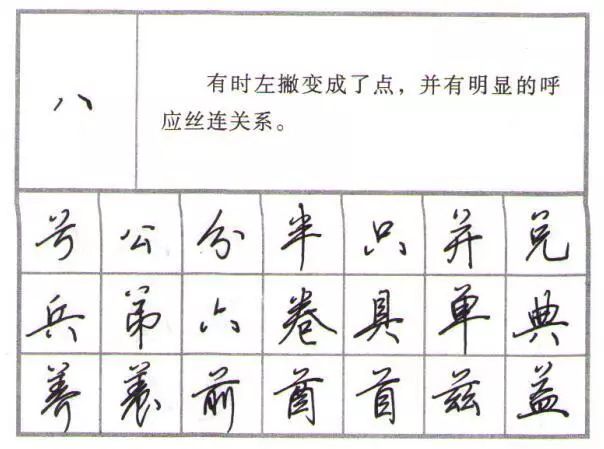 八
有时左撇变成了点，并有明显的呼
应丝连关系。
兮 公 分 半 只 并 兑
兵 弟 六 卷 具 单 典
养 養 前 酋 首 兹 益